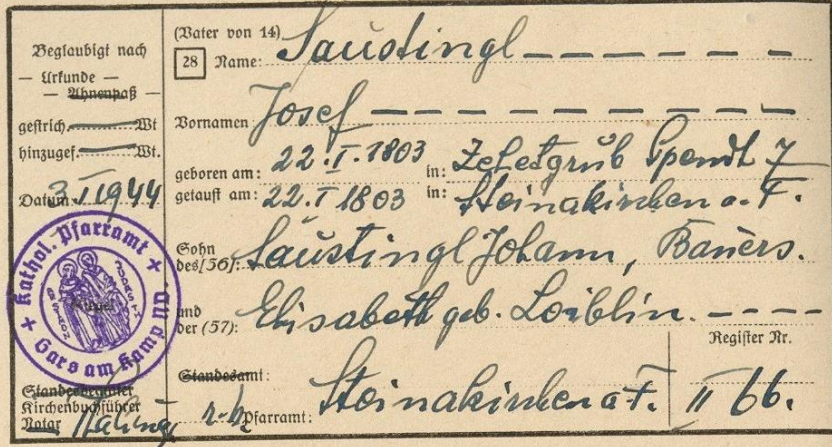 Beglaubigt nach
— Urkunde —
— Ahnenpaß
gestrich. Wt
hinzugef. Wt.
Datum: 3 I 1944
Kathol. Pfarramt
Gars am Kamp
Siegel
Standesbeamter
Kirchenbuchführer
Notar
(Vater von 14)
28 Name: Saustingl
Vornamen Josef
geboren am: 22.I.1803 in: Zehetgrub 7
getauft am: 22.I 1803 in: Steinakirchen a. F.
Sohn
des (56): Saustingl Johann, Bauers.
und
der (57): Elisabeth geb. Loiblin.
Register Nr.
Standesamt:
r.k. Pfarramt: Steinakirchen a. F. II 66.